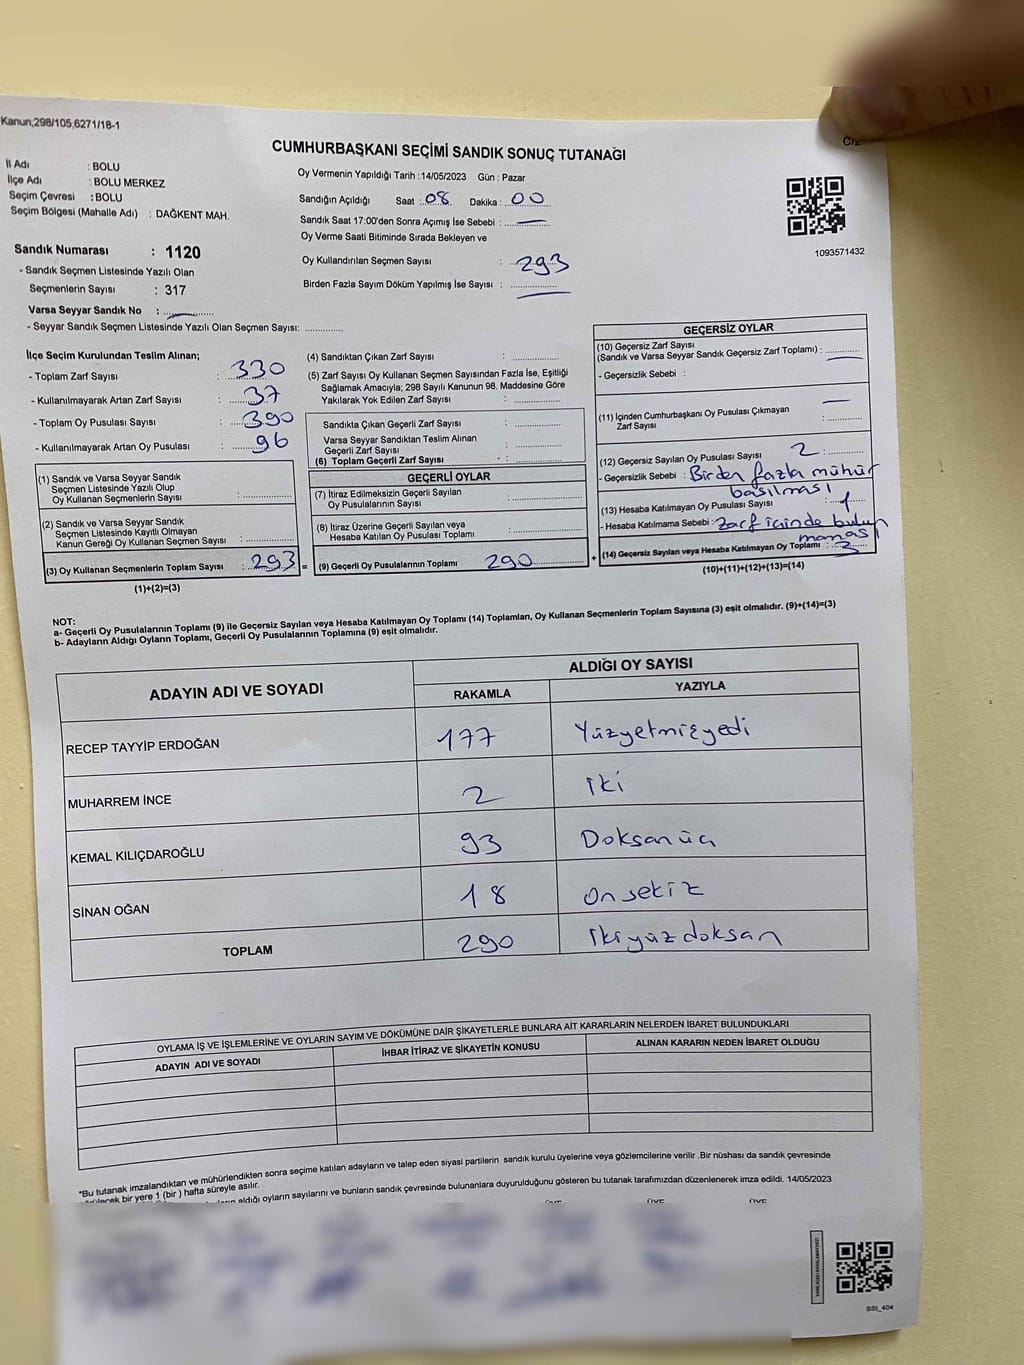 Kanun;298/105,6271/18-1
CUMHURBAŞKANI SEÇİMİ SANDIK SONUÇ TUTANAĞI
İl Adı : BOLU
İlçe Adı : BOLU MERKEZ
Seçim Çevresi : BOLU
Seçim Bölgesi (Mahalle Adı) : DAĞKENT MAH.
Oy Vermenin Yapıldığı Tarih :14/05/2023 Gün : Pazar
Sandığın Açıldığı Saat : 08 Dakika : 00
Sandık Saat 17:00'den Sonra Açımış İse Sebebi :
Oy Verme Saati Bitiminde Sırada Bekleyen ve
Oy Kullandırılan Seçmen Sayısı : 293
Birden Fazla Sayım Döküm Yapılmış İse Sayısı :
1093571432
Sandık Numarası : 1120
- Sandık Seçmen Listesinde Yazılı Olan
Seçmenlerin Sayısı : 317
Varsa Seyyar Sandık No :
- Seyyar Sandık Seçmen Listesinde Yazılı Olan Seçmen Sayısı:
İlçe Seçim Kurulundan Teslim Alınan;
- Toplam Zarf Sayısı : 330
- Kullanılmayarak Artan Zarf Sayısı : 37
- Toplam Oy Pusulası Sayısı : 390
- Kullanılmayarak Artan Oy Pusulası : 96
(1) Sandık ve Varsa Seyyar Sandık
Seçmen Listesinde Yazılı Olup
Oy Kullanan Seçmenlerin Sayısı :
(2) Sandık ve Varsa Seyyar Sandık
Seçmen Listesinde Kayıtlı Olmayan
Kanun Gereği Oy Kullanan Seçmen Sayısı :
(3) Oy Kullanan Seçmenlerin Toplam Sayısı : 293 =
(1)+(2)=(3)
(4) Sandıktan Çıkan Zarf Sayısı :
(5) Zarf Sayısı Oy Kullanan Seçmen Sayısından Fazla İse, Eşitliği
Sağlamak Amacıyla; 298 Sayılı Kanunun 98. Maddesine Göre
Yakılarak Yok Edilen Zarf Sayısı :
Sandıkta Çıkan Geçerli Zarf Sayısı :
Varsa Seyyar Sandıktan Teslim Alınan
Geçerli Zarf Sayısı :
(6) Toplam Geçerli Zarf Sayısı :
GEÇERLİ OYLAR
(7) İtiraz Edilmeksizin Geçerli Sayılan
Oy Pusulalarının Sayısı :
(8) İtiraz Üzerine Geçerli Sayılan veya
Hesaba Katılan Oy Pusulası Toplamı :
(9) Geçerli Oy Pusulalarının Toplamı 290 +
GEÇERSİZ OYLAR
(10) Geçersiz Zarf Sayısı
(Sandık ve Varsa Seyyar Sandık Geçersiz Zarf Toplamı) :
- Geçersizlik Sebebi :
(11) İçinden Cumhurbaşkanı Oy Pusulası Çıkmayan
Zarf Sayısı :
(12) Geçersiz Sayılan Oy Pusulası Sayısı : 2
- Geçersizlik Sebebi : Birden fazla mühür
basılması
(13) Hesaba Katılmayan Oy Pusulası Sayısı : 1
- Hesaba Katılmama Sebebi : Zarf içinde bulun
maması
(14) Geçersiz Sayılan veya Hesaba Katılmayan Oy Toplamı : 3
(10)+(11)+(12)+(13)=(14)
NOT:
a- Geçerli Oy Pusulalarının Toplamı (9) ile Geçersiz Sayılan veya Hesaba Katılmayan Oy Toplamı (14) Toplamları, Oy Kullanan Seçmenlerin Toplam Sayısına (3) eşit olmalıdır. (9)+(14)=(3)
b- Adayların Aldığı Oyların Toplamı, Geçerli Oy Pusulalarının Toplamına (9) eşit olmalıdır.
ADAYIN ADI VE SOYADI
ALDIĞI OY SAYISI
RAKAMLA YAZIYLA
RECEP TAYYİP ERDOĞAN 177 Yüzyetmişyedi
MUHARREM İNCE 2 iki
KEMAL KILIÇDAROĞLU 93 Doksanüç
SİNAN OĞAN 18 Onsekiz
TOPLAM 290 ikiyüzdoksan
OYLAMA İŞ VE İŞLEMLERİNE VE OYLARIN SAYIM VE DÖKÜMÜNE DAİR ŞİKAYETLERLE BUNLARA AİT KARARLARIN NELERDEN İBARET BULUNDUKLARI
ADAYIN ADI VE SOYADI İHBAR İTİRAZ VE ŞİKAYETİN KONUSU ALINAN KARARIN NEDEN İBARET OLDUĞU
*Bu tutanak imzalandıktan ve mühürlendikten sonra seçime katılan adayların ve talep eden siyasi partilerin sandık kurulu üyelerine veya gözlemcilerine verilir .Bir nüshası da sandık çevresinde
bir yere 1 (bir ) hafta süreyle asılır.
aldığı oyların sayılarını ve bunların sandık çevresinde bulunanlara duyurulduğunu gösteren bu tutanak tarafımızdan düzenlenerek imza edildi. 14/05/2023
SSI_404